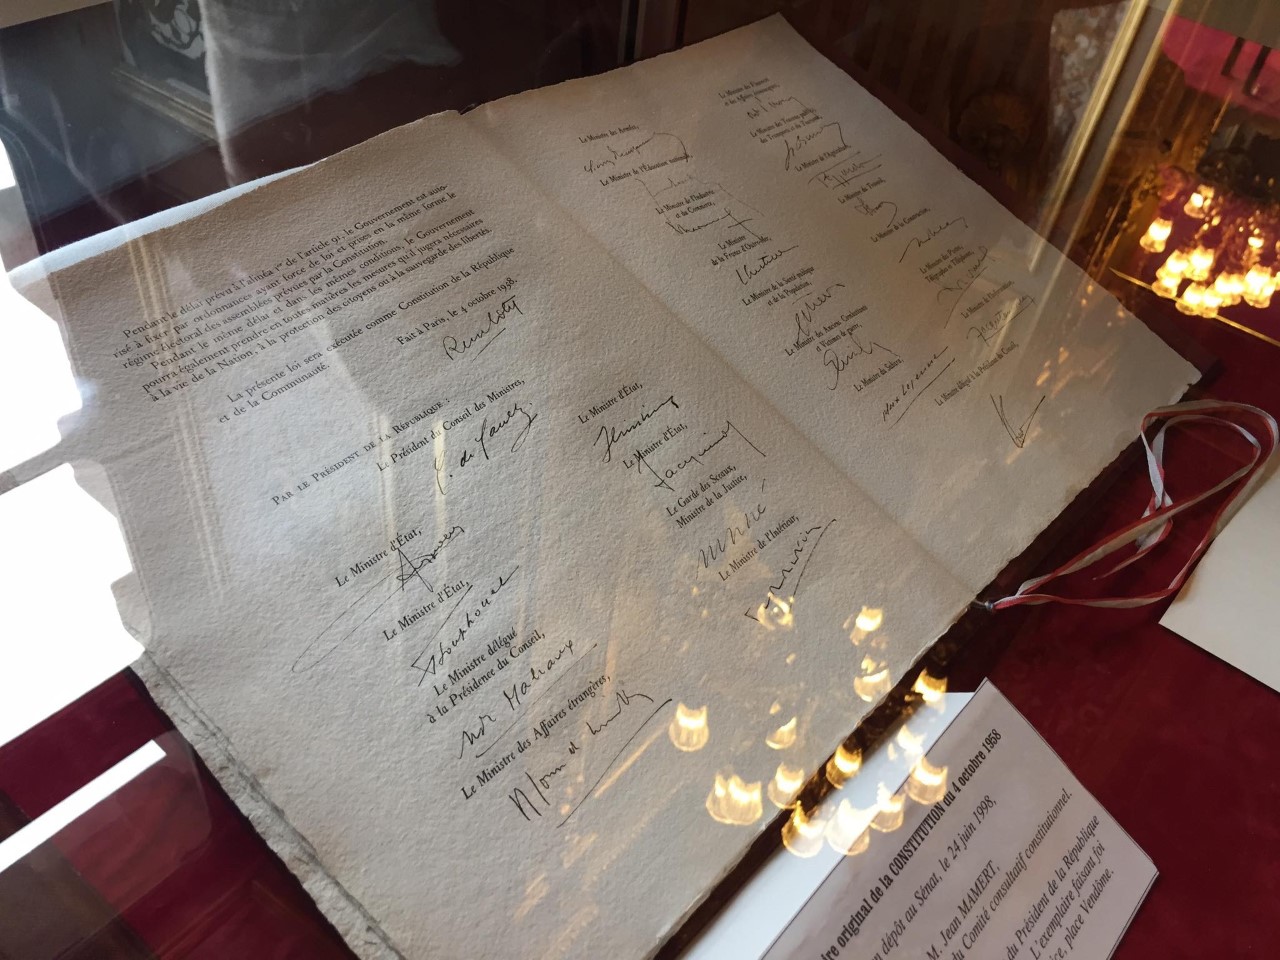 Pendant le délai prévu à l'alinéa 1er de l'article 91, le Gouvernement est auto-
risé à fixer par ordonnances ayant force de loi et prises en la même forme le
régime électoral des assemblées prévues par la Constitution.
Pendant le même délai et dans les mêmes conditions, le Gouvernement
pourra également prendre en toutes matières les mesures qu'il jugera nécessaires
à la vie de la Nation, à la protection des citoyens ou à la sauvegarde des libertés.
La présente loi sera exécutée comme Constitution de la République
et de la Communauté.
Fait à Paris, le 4 octobre 1958.
René Coty
PAR LE PRÉSIDENT DE LA RÉPUBLIQUE :
Le Président du Conseil des Ministres,
C. de Gaulle
Le Ministre d'État,
Le Ministre d'État,
Le Ministre délégué
à la Présidence du Conseil,
Malraux
Le Ministre des Affaires étrangères,
Le Ministre d'État,
Le Ministre d'État,
Jacquinot
Le Garde des Sceaux,
Ministre de la Justice,
Le Ministre de l'Intérieur,
Le Ministre des Armées,
Le Ministre de l'Éducation nationale,
Le Ministre de l'Industrie
et du Commerce,
Le Ministre
de la France d'Outre-Mer,
Le Ministre de la Santé publique
et de la Population,
Le Ministre des Anciens Combattants
et Victimes de guerre,
Le Ministre du Sahara,
Max Lejeune
Le Ministre des Finances
et des Affaires économiques,
Le Ministre des Travaux publics,
des Transports et du Tourisme,
Le Ministre de l'Agriculture,
Le Ministre du Travail,
Le Ministre de la Construction,
Le Ministre des Postes,
Télégraphes et Téléphones,
Le Ministre de l'Information,
Le Ministre délégué à la Présidence du Conseil,
ire original de la CONSTITUTION du 4 octobre 1958
en dépôt au Sénat, le 24 juin 1998,
M. Jean MAMERT,
du Comité consultatif constitutionnel.
du Président de la République
L'exemplaire faisant foi
ice, place Vendôme.